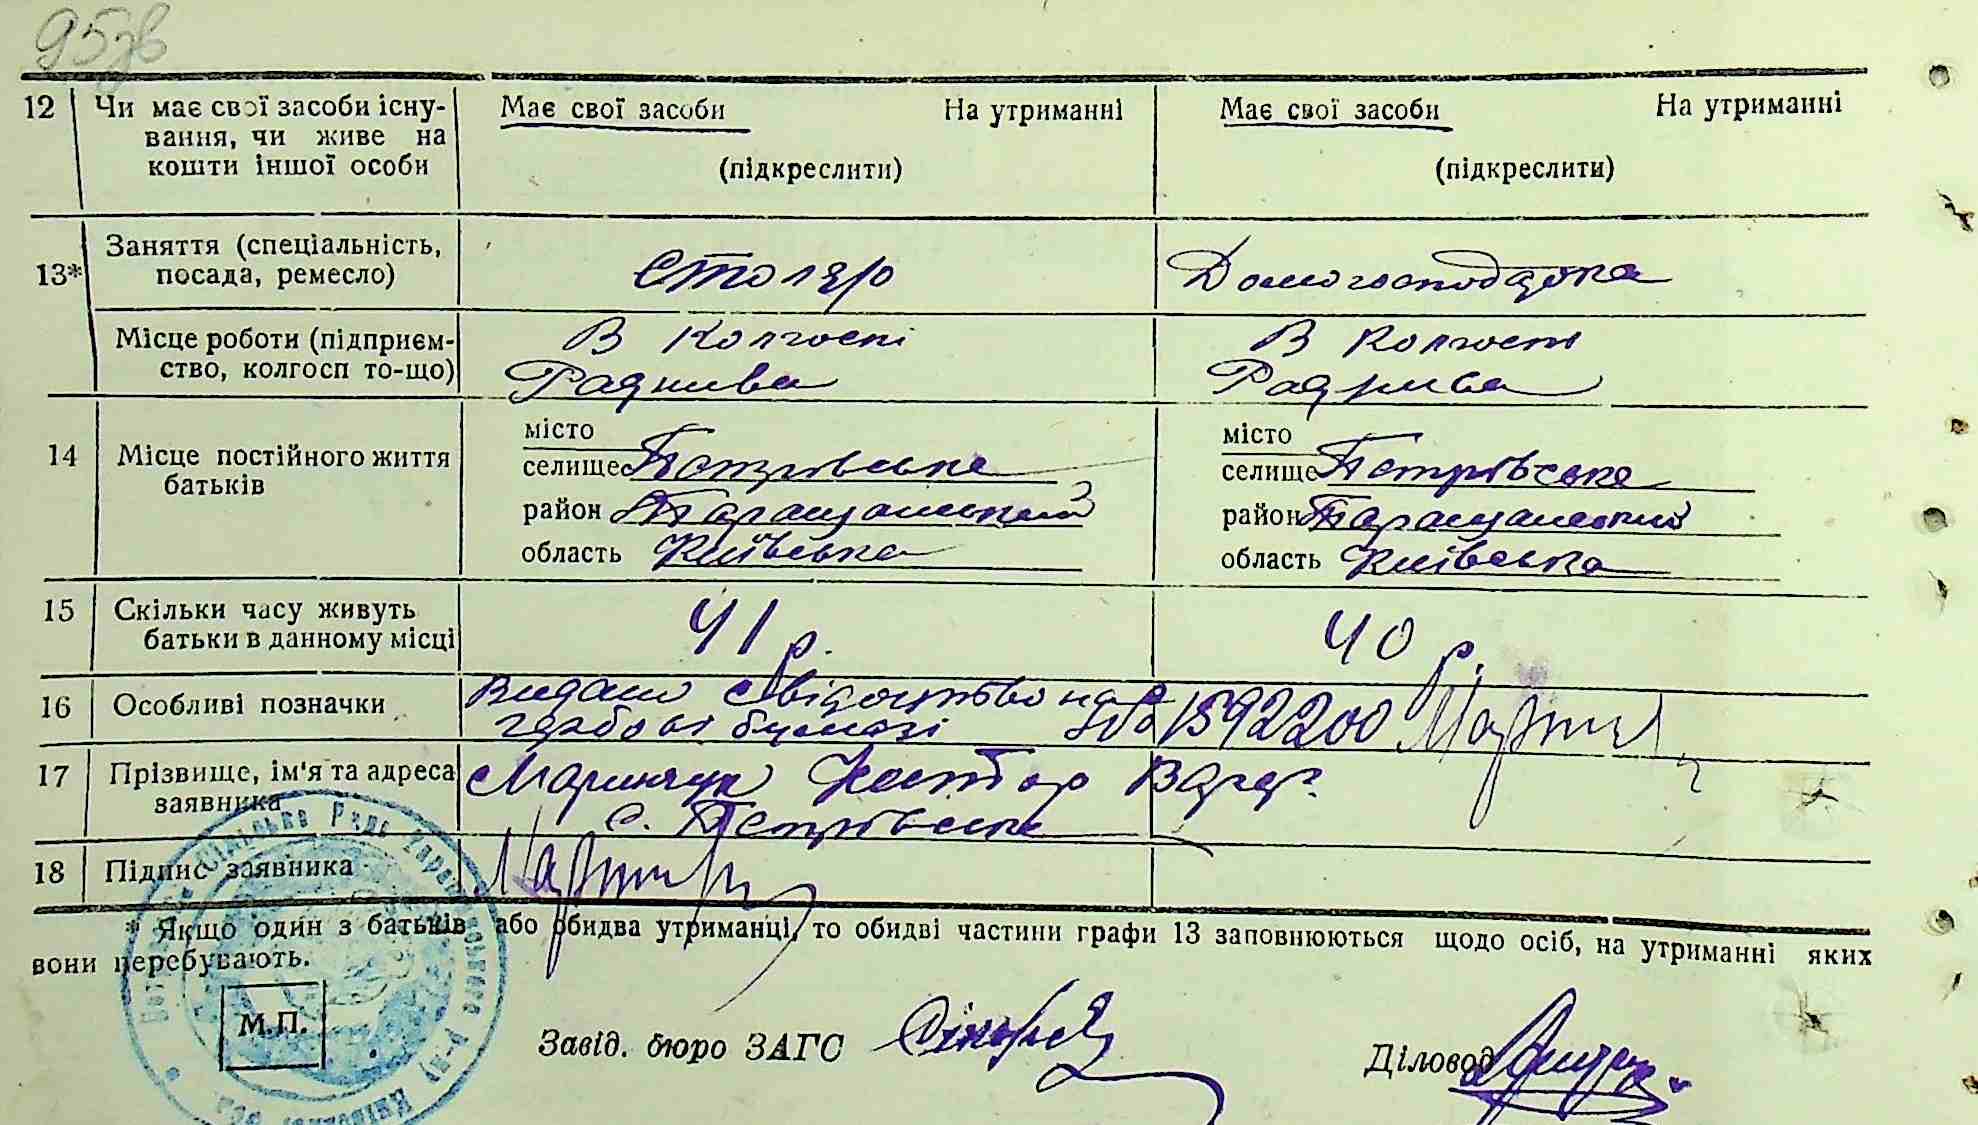 95зв
12 Чи має свої засоби існу-
вання, чи живе на
кошти іншої особи
Має свої засоби На утриманні
(підкреслити)
Має свої засоби На утриманні
(підкреслити)
13* Заняття (спеціальність,
посада, ремесло)
Столяр
Домогосподарка
Місце роботи (підприєм-
ство, колгосп то-що)
В колгоспі
Раднива
В колгоспі
Раднива
14 Місце постійного життя
батьків
місто
селище Петрівське
район Таращанський
область Київська
місто
селище Петрівське
район Таращанський
область Київська
15 Скільки часу живуть
батьки в данному місці
41 р.
40 р.
16 Особливі позначки
Видано свідоцтво на
гербові бумазі № 1592200
17 Прізвище, ім'я та адреса
заявника
Маринчук Нестор
с. Петрівське
18 Підпис заявника
* Якщо один з батьків або обидва утриманці, то обидві частини графи 13 заповнюються щодо осіб, на утриманні яких
вони перебувають.
М.П.
Завід. бюро ЗАГС
Діловод